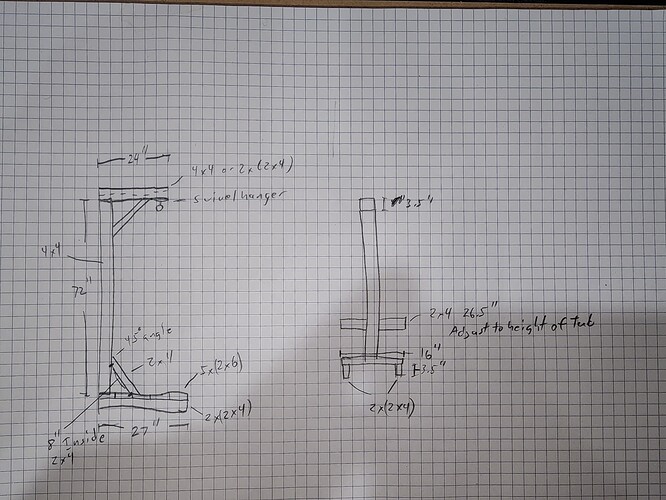 24"
4x4 or 2x(2x4)
swivel hanger
4x4
72"
45° angle
2x4
5x(2x6)
2x(2x4)
27"
8" Inside
2x4
3.5"
2x4 26.5"
Adjust to height of Tub
16"
3.5"
2x(2x4)